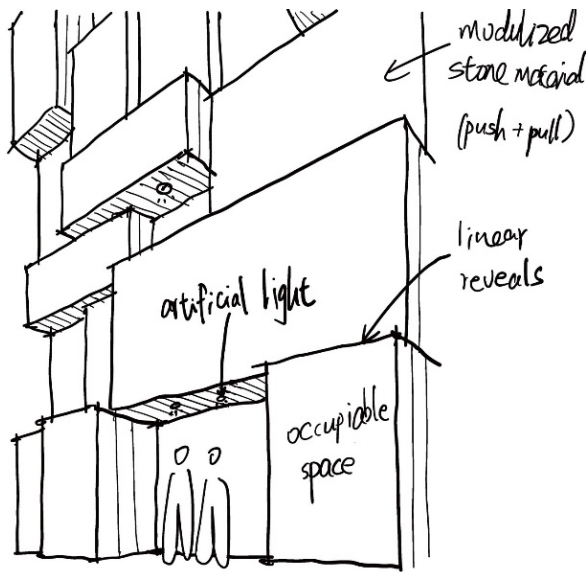 modulized
stone material
(push + pull)
linear
reveals
artificial light
occupiable
space